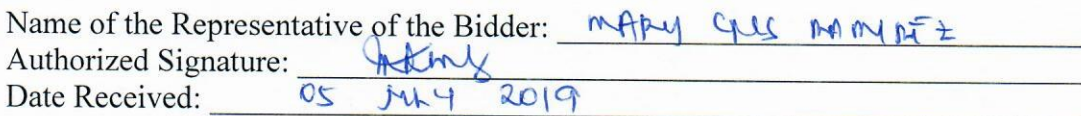 Name of the Representative of the Bidder: MARY
Authorized Signature:
Date Received: 05 JULY 2019